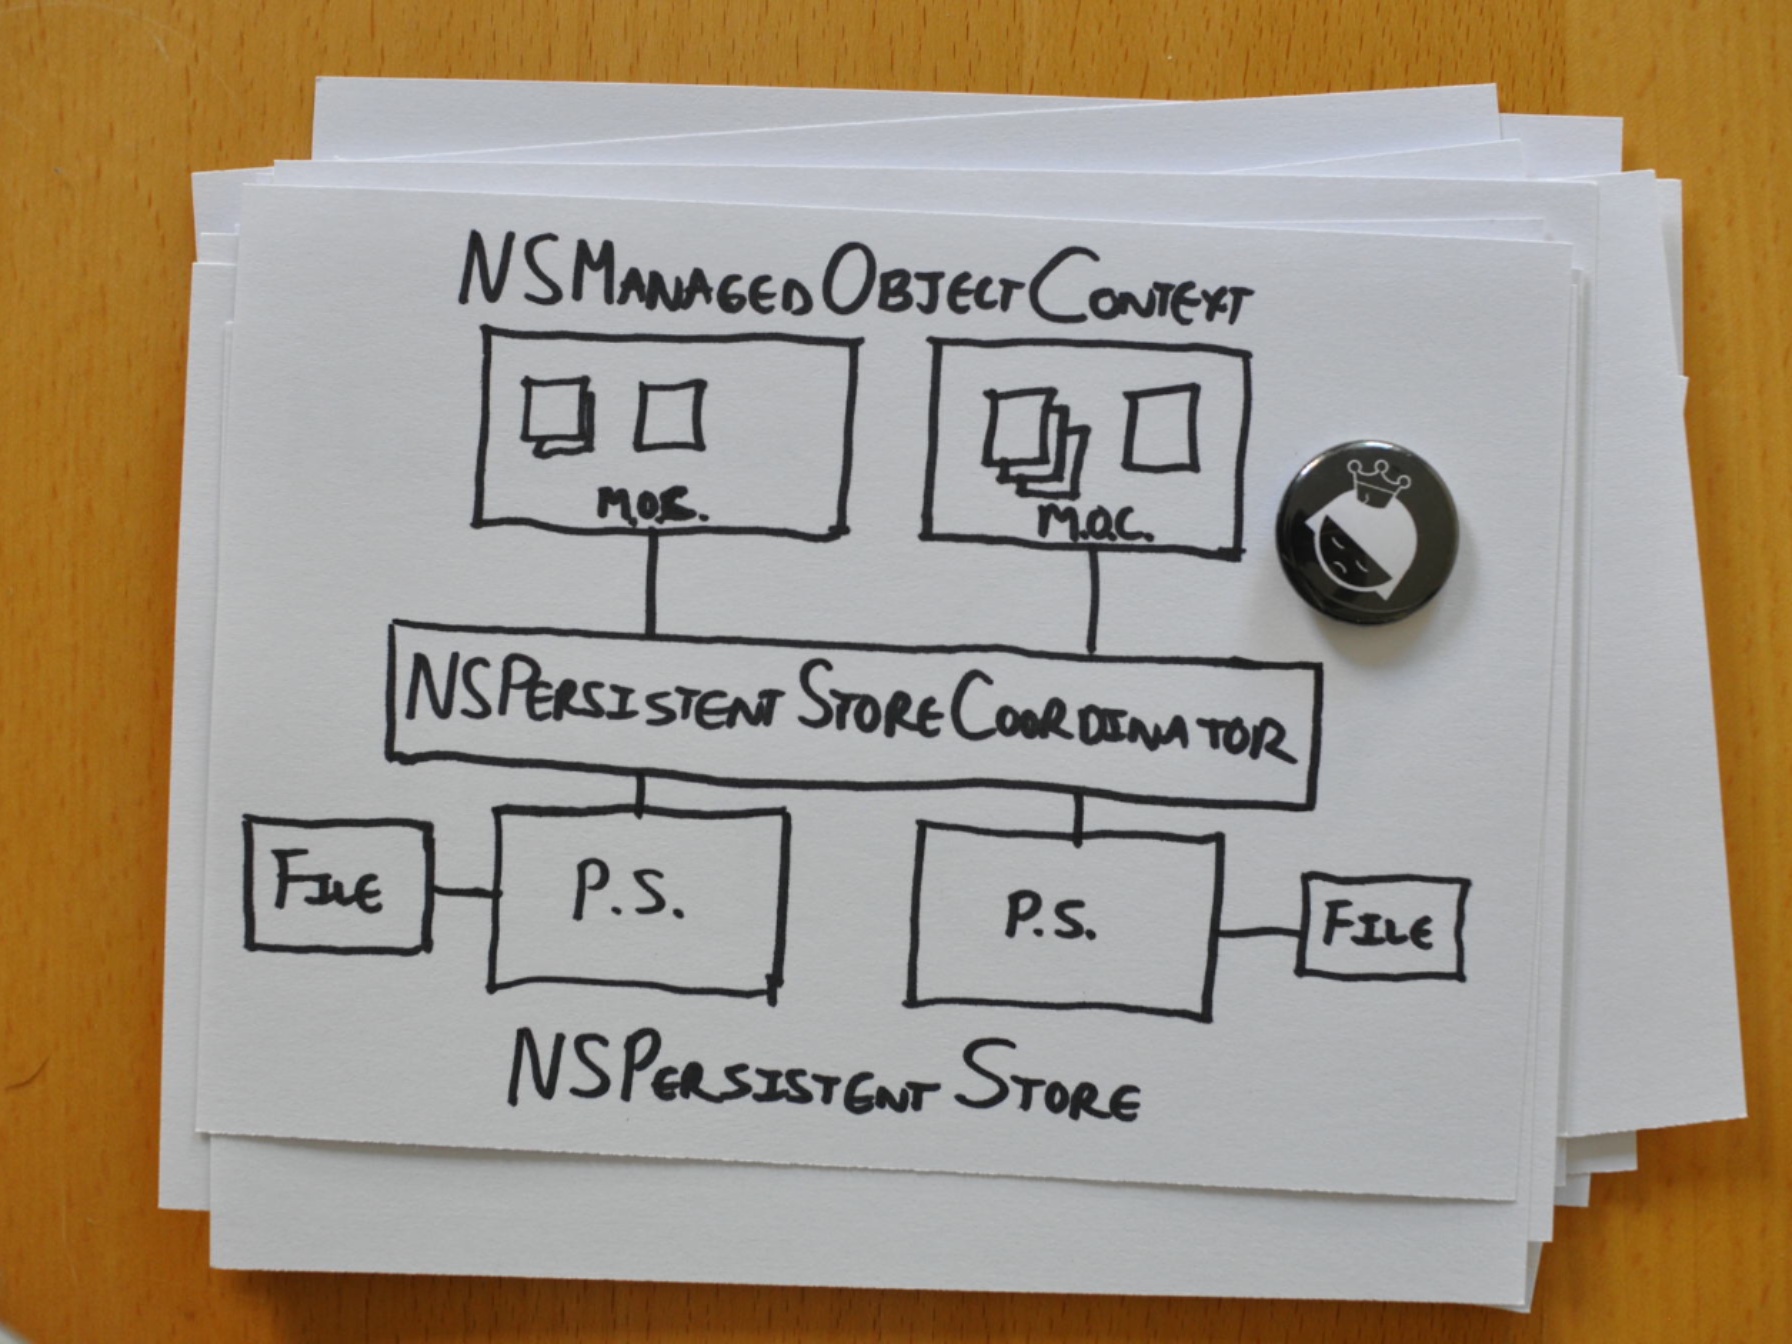 NSManagedObjectContext
M.O.C.
M.O.C.
NSPersistentStoreCoordinator
File
P.S.
P.S.
File
NSPersistentStore